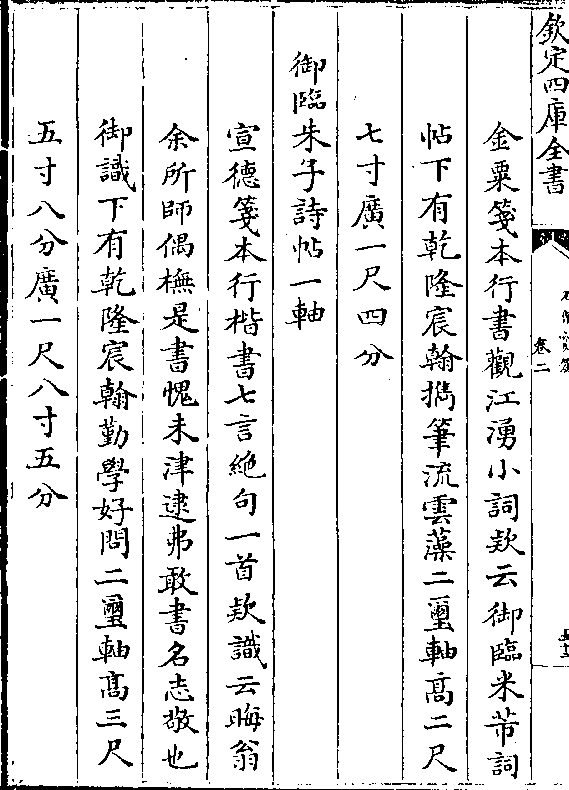 欽定四庫全書
卷二
金粟箋本行書觀江湧小詞欵云御臨米芾詞
帖下有乾隆宸翰擒筆流雲藻二璽軸高二尺
七寸廣一尺四分
御臨朱子詩帖一軸
宣德箋本行楷書七言絶句一首欵識云晦翁
余所師偶橅是書愧未津逮弗敢書名志敬也
御識下有乾隆宸翰勤學好問二璽軸高三尺
五寸八分廣一尺八寸五分